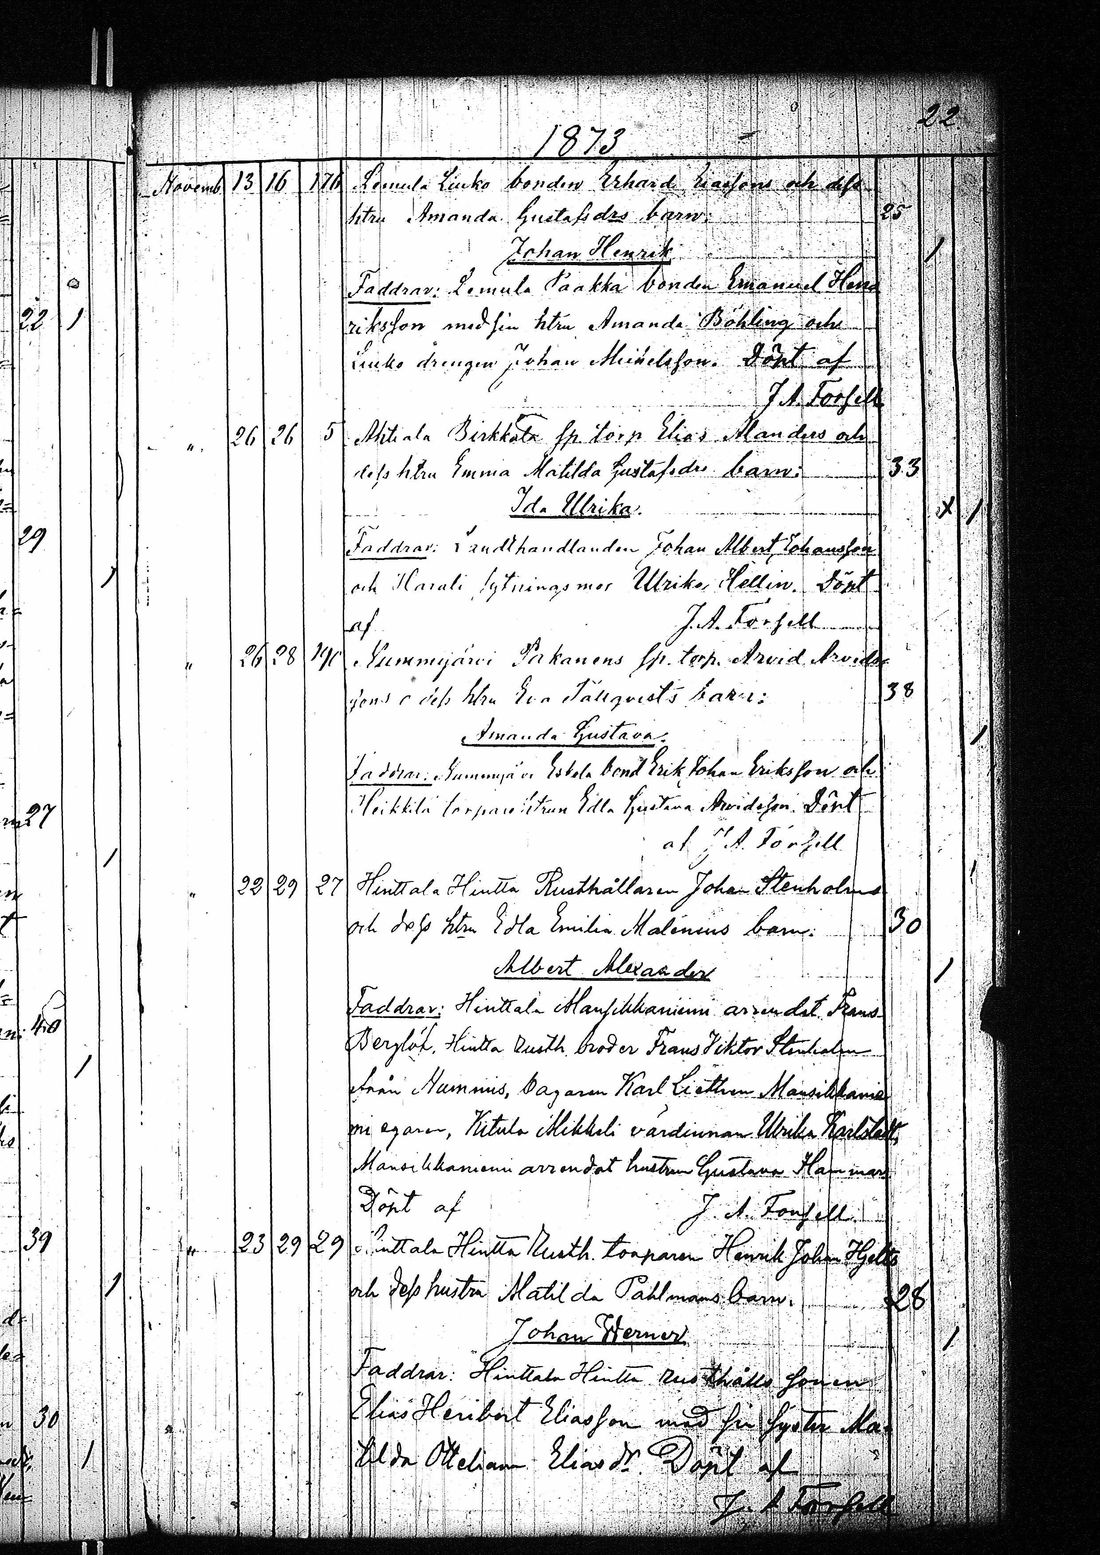 22
1873
Novemb. 13 16 176 Lemula Liuko bonden Erhard och dess
htru Amanda Gustafsdrs barn: 25
Johan Henrik 1
Faddrar: Lemula Paakka bonden Emanuel Hen
riksson med sin htru Amanda Böhling och
Liuko drengen Johan Mickelsson. Döpt af
J. A. Forsell
" 26 26 5 Ahtiala Birkkala sp. torp Elias Manders och
dess htru Emma Matilda Gustafsdrs barn: 33
Ida Ulrika. x 1
Faddrar: Landthandlanden Johan Albert Johansson
och sytningsmor Ulrika Hellin. Döpt
af J. A. Forsell
" 26 28 Nummijärvi Pakanens sp. torp. Arvid Arvids-
sons o dess htru Eva barn: 38
Amanda Gustava. 1
Faddrar: Nummijärvi Eskola bond Erik Johan Eriksson och
Heikkilä torpare htrun Edla Gustava Arvidsson. Döpt
af J. A. Forsell
" 22 29 27 Hinttala Hintta Rusthållaren Johan Stenholms 1
och dess htru Edla Emilia Malenius barn: 30
Albert Alexander 1
Faddrar: Hinttala Mansikkaniemi arrendat. Frans
Berglöf, Hintta rusth. broder Frans Viktor Stenholm
från Nummis, bagaren Karl Mansikkanie
mi egaren, Kitula Mikkeli värdinnan Ulrika Karlstedt,
Mansikkaniemi arrendat hustrun Gustava Hammar
Döpt af J. A. Forsell
" 23 29 29 Hinttala Hintta Rusth. torparen Henrik Johan Hjelts
och dess hustru Matilda Pahlmans barn. 28
Johan Werner 1
Faddrar: Hinttala Hintta rusthålls sonen
Elias Heribert Eliasson med sin syster Ma-
tilda Otteliana Eliasdr. Döpt af
J. A. Forsell
22 1
29
27
1
40
1
39
1
30
1